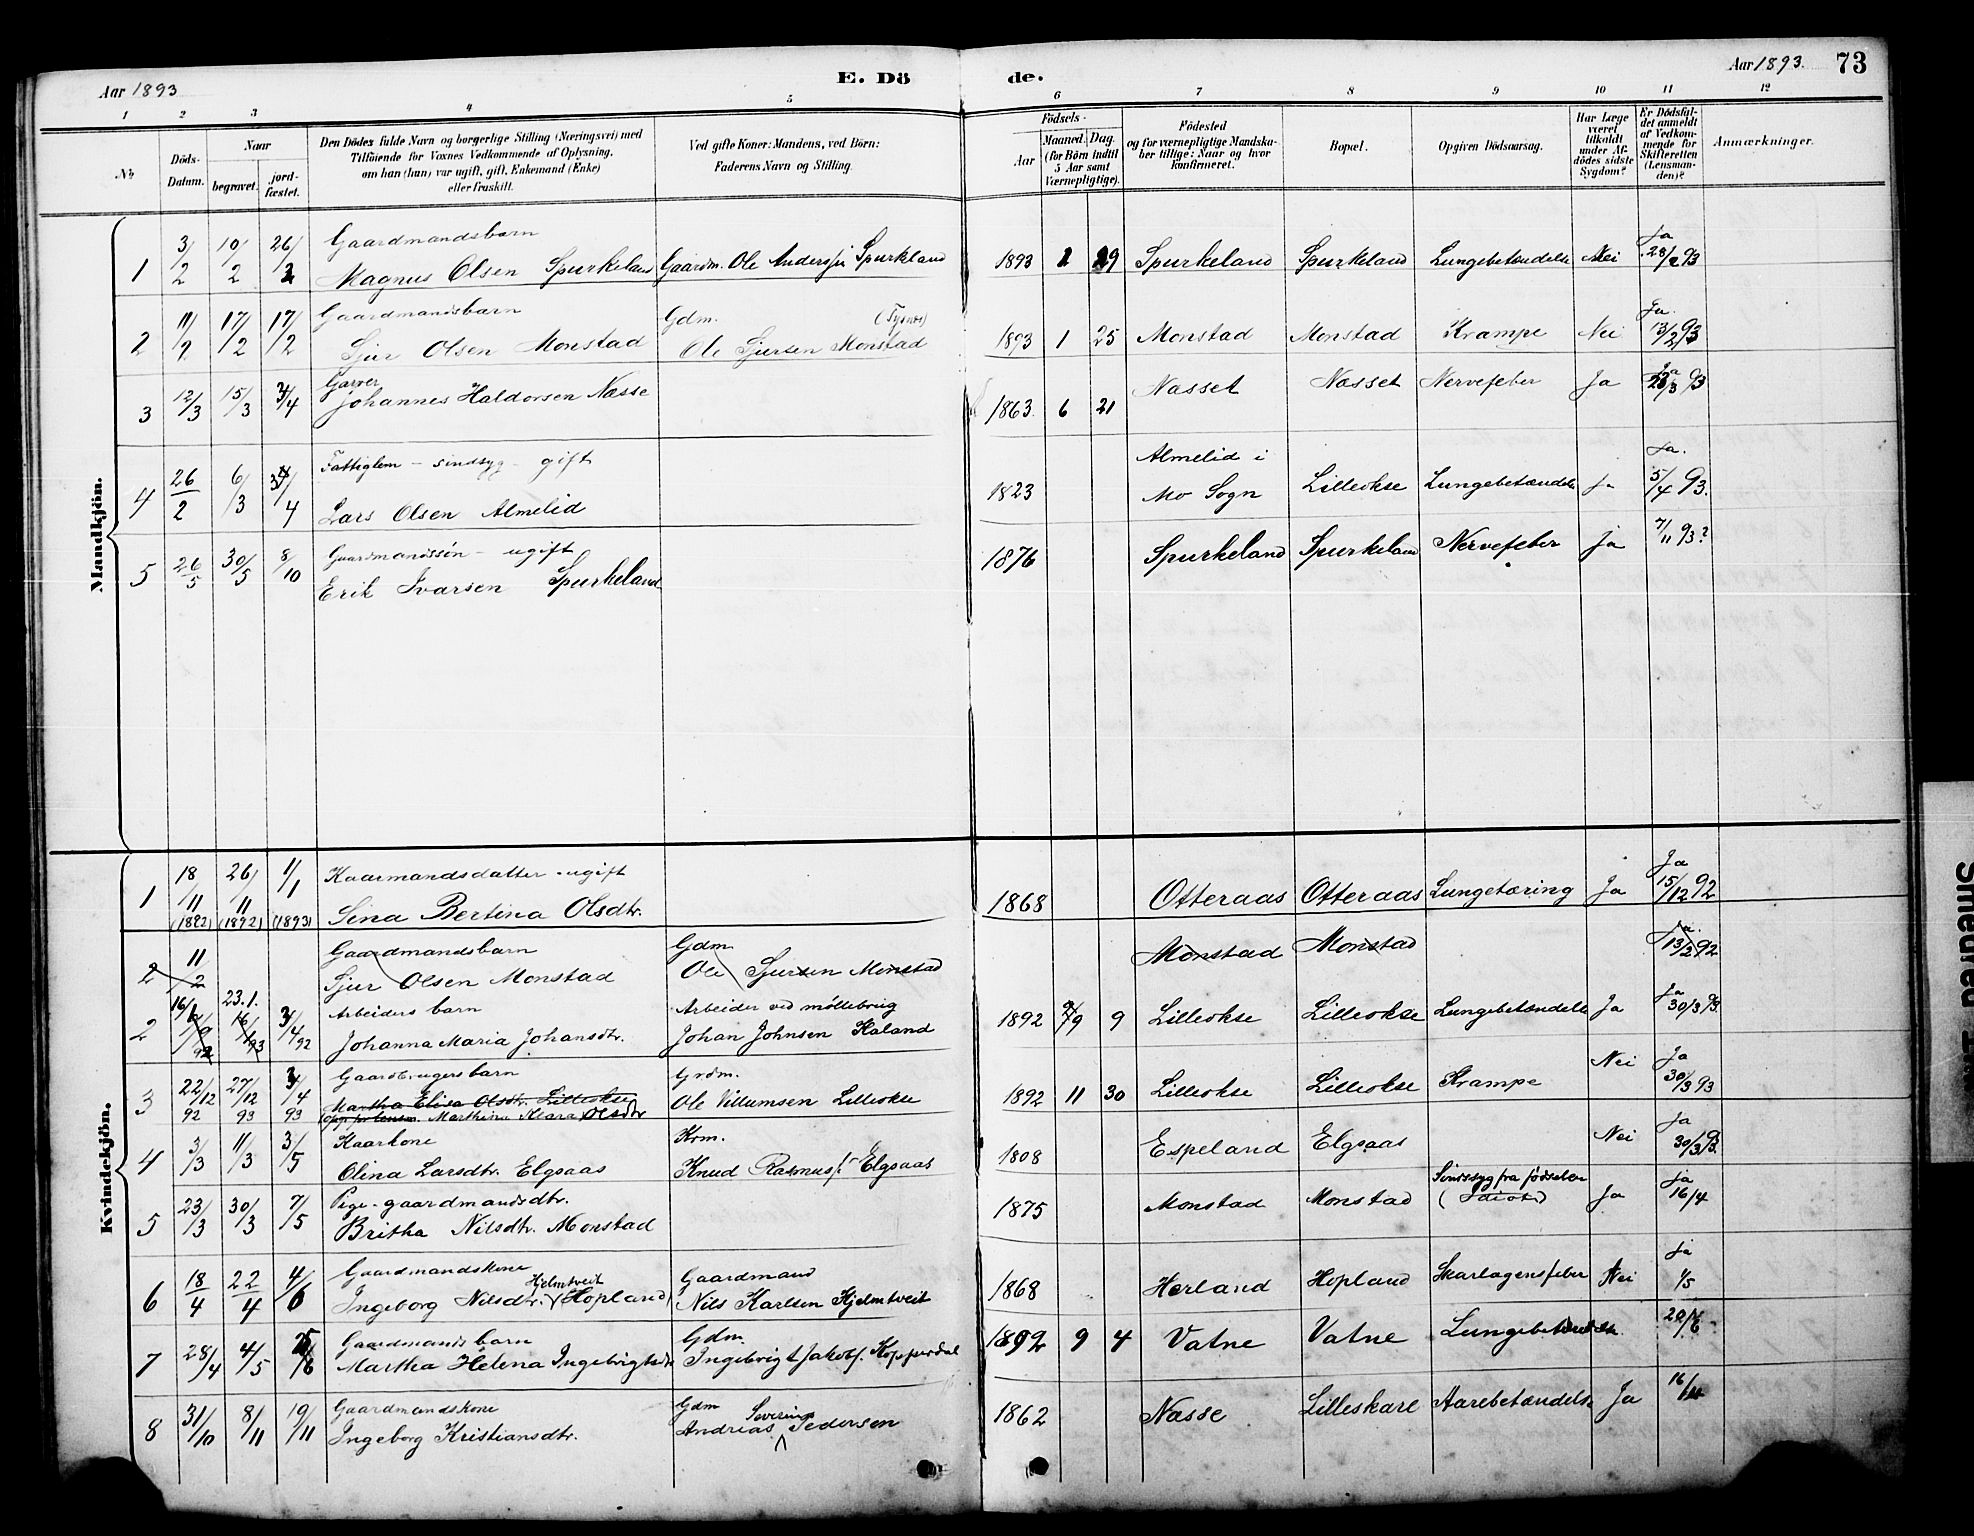 Aar 1893
E. Dö
de.
Aar 1893.
73
1 2 3 4 5 6 7 8 9 10 11 12
№
Döds-Datum.
Naar
begravet.
jord-fæstet.
Den Dödes fulde Navn og borgerlige Stilling (Næringsvei) med
Tilføiende for Voxnes Vedkommende af Oplysning,
om han (hun) var ugift, gift, Enkemand (Enke)
eller fraskilt.
Ved gifte Koner: Mandens, ved Börn:
Faderens Navn og Stilling.
Födsels-
Aar
Maaned. Dag.
(for Börn indtil
5 Aar samt
Værnepligtige).
Födested
og for værnepligtige Mandska-
ber tillige: Naar og hvor
konfirmeret.
Bopæl.
Opgiven Dödsaarsag.
Har Læge
været
tilkaldt
under Af-
dödes sidste
Sygdom?
Er Dödsfal-
det anmeldt
af Vedkom-
mende for
Skifteretten
(Lensman-
den)?
Anmærkninger.
Mandkjön.
Gaardmandsbarn Ja
1 3/2 10/2 26/2 Magnus Olsen Spurkeland Gaardm. Ole Anderssen Spurkland 1893 29 Spurkeland Spurkland Lungebetændelse Nei 28/2 93
Gaardmandsbarn Gdm. (Tysnes) Ja.
2 11/2 17/2 17/2 Sjur Olsen Monstad Ole Sjursen Monstad 1893 1 25 Monstad Monstad Krampe Nei 13/2 93
Garver Ja
3 12/3 15/3 3/4 Johannes Haldorsen Nasse 1863. 6 21 Nasset Nasset Nervefeber Ja 93
Fattiglem - sindsyg - gift Almelid i Ja.
4 26/2 6/3 3/4 Lars Olsen Almelid 1823 Mo Sogn Lilleokse Lungebetændelse Ja 5/4 93.
Gaardmandssön - ugift
5 26/5 30/5 8/10 Erik Ivarsen Spurkeland 1876 Spurkeland Spurkeland Nervefeber Ja 7/11 93?
Kvindekjön.
Kaarmandsdatter - ugift Ja
1 18/11 26/11 1/1 Sina Bertina Olsdtr. 1868 Otteraas Otteraas Lungetæring Ja 15/12 92
(1892) (1892) (1893)
Gaardmandsbarn Gdm Ja.
2 11/2 Sjur Olsen Monstad Ole Sjursen Monstad Monstad Monstad 13/2 92
Arbeiders barn Arbeider ved möllebrug Ja
2 16/1 23.1. 3/4 92 Johanna Maria Johansdtr. Johan Johnsen Haland 1892 9 9 Lilleokse Lilleokse Lungebetændelse Ja 30/3 93.
Gaardbrugersbarn Grdm. Ja
3 22/12 92 27/12 93 3/4 93 Martha Elisa Olsdtr. Lilleokse Ole Villumsen Lilleokse 1892 11 30 Lilleokse Lilleokse Krampe Nei 30/3 93
Marthina Klara Olsdtr
Kaarkone Krm. Ja
4 3/3 11/3 3/5 Olina Larsdtr. Elgsaas Knud Rasmus Elgsaas 1808 Espeland Elgsaas Nei 30/3 93.
Pige - gaardmandsdtr. Sindssyg fra födselen Ja
5 23/3 30/3 7/5 Britha Nilsdtr. Monstad 1875 Monstad Monstad (Idiot) Ja 16/4
Gaardmandskone Hjelmtveit Gaardmand Ja
6 18/4 22/4 4/6 Ingeborg Nilsdtr. (Hopland) Nils Karlsen Hjelmtveit 1868 Herland Hopland Skarlagensfeber Nei 1/5
Gaardmandsbarn Gdm.
7 28/4 4/5 Martha Helena Ingebrigtsdtr Ingebrigt Jakobs. Kopperdal 1892 9 4 Vatne Vatne Lungebetændelse 20/6
Gaardmandskone Gdm Severin
8 31/10 8/11 19/11 Ingeborg Kristiansdtr. Andreas Pedersen 1862 Nasse Lilleskare Aarebetændelse Ja 16/11